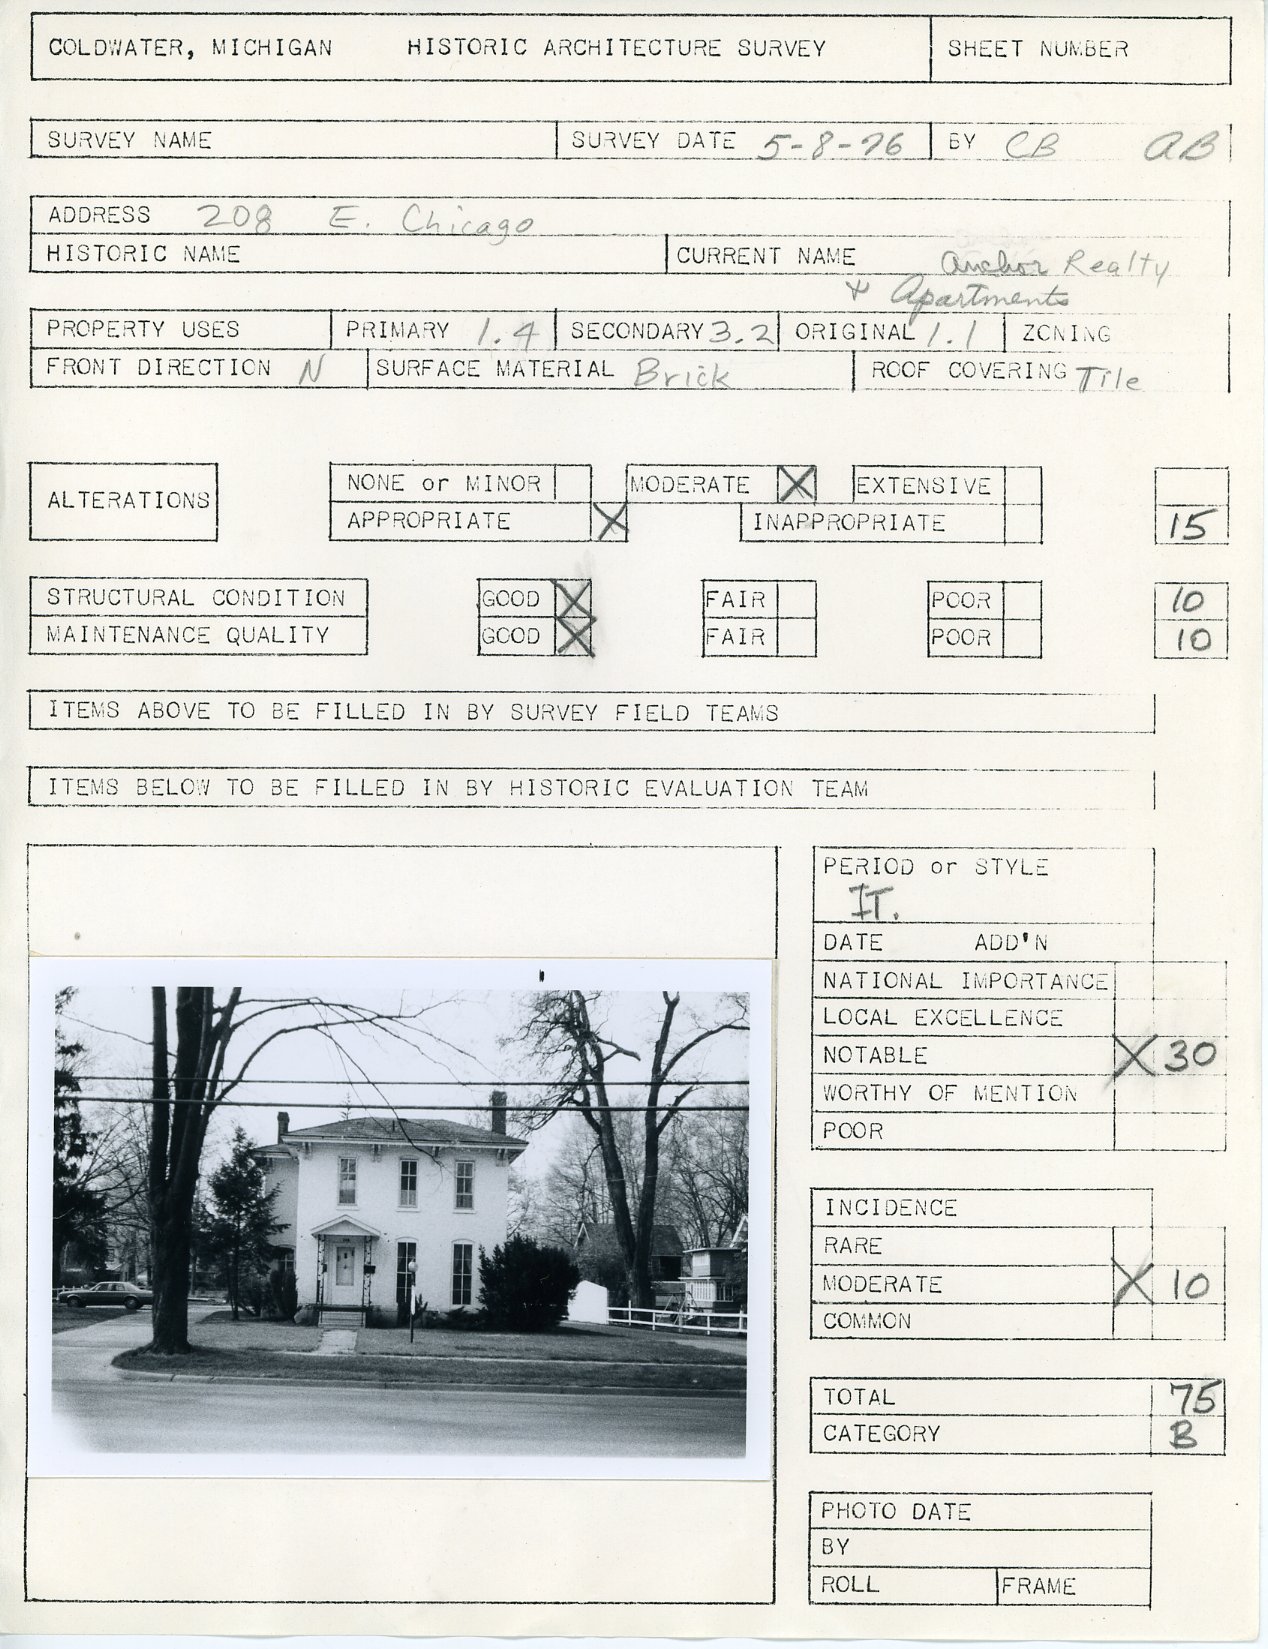 COLDWATER, MICHIGAN HISTORIC ARCHITECTURE SURVEY SHEET NUMBER
SURVEY NAME SURVEY DATE 5-8-76 BY CB AB
ADDRESS 208 E. Chicago
HISTORIC NAME CURRENT NAME Anchor Realty
& Apartments
PROPERTY USES PRIMARY 1.4 SECONDARY 3.2 ORIGINAL 1.1 ZONING
FRONT DIRECTION N SURFACE MATERIAL Brick ROOF COVERING Tile
ALTERATIONS NONE or MINOR MODERATE X EXTENSIVE
APPROPRIATE X INAPPROPRIATE 15
STRUCTURAL CONDITION GOOD X FAIR POOR 10
MAINTENANCE QUALITY GOOD X FAIR POOR 10
ITEMS ABOVE TO BE FILLED IN BY SURVEY FIELD TEAMS
ITEMS BELOW TO BE FILLED IN BY HISTORIC EVALUATION TEAM
PERIOD or STYLE
IT.
DATE ADD'N
NATIONAL IMPORTANCE
LOCAL EXCELLENCE
NOTABLE X 30
WORTHY OF MENTION
POOR
INCIDENCE
RARE
MODERATE X 10
COMMON
TOTAL 75
CATEGORY B
PHOTO DATE
BY
ROLL FRAME